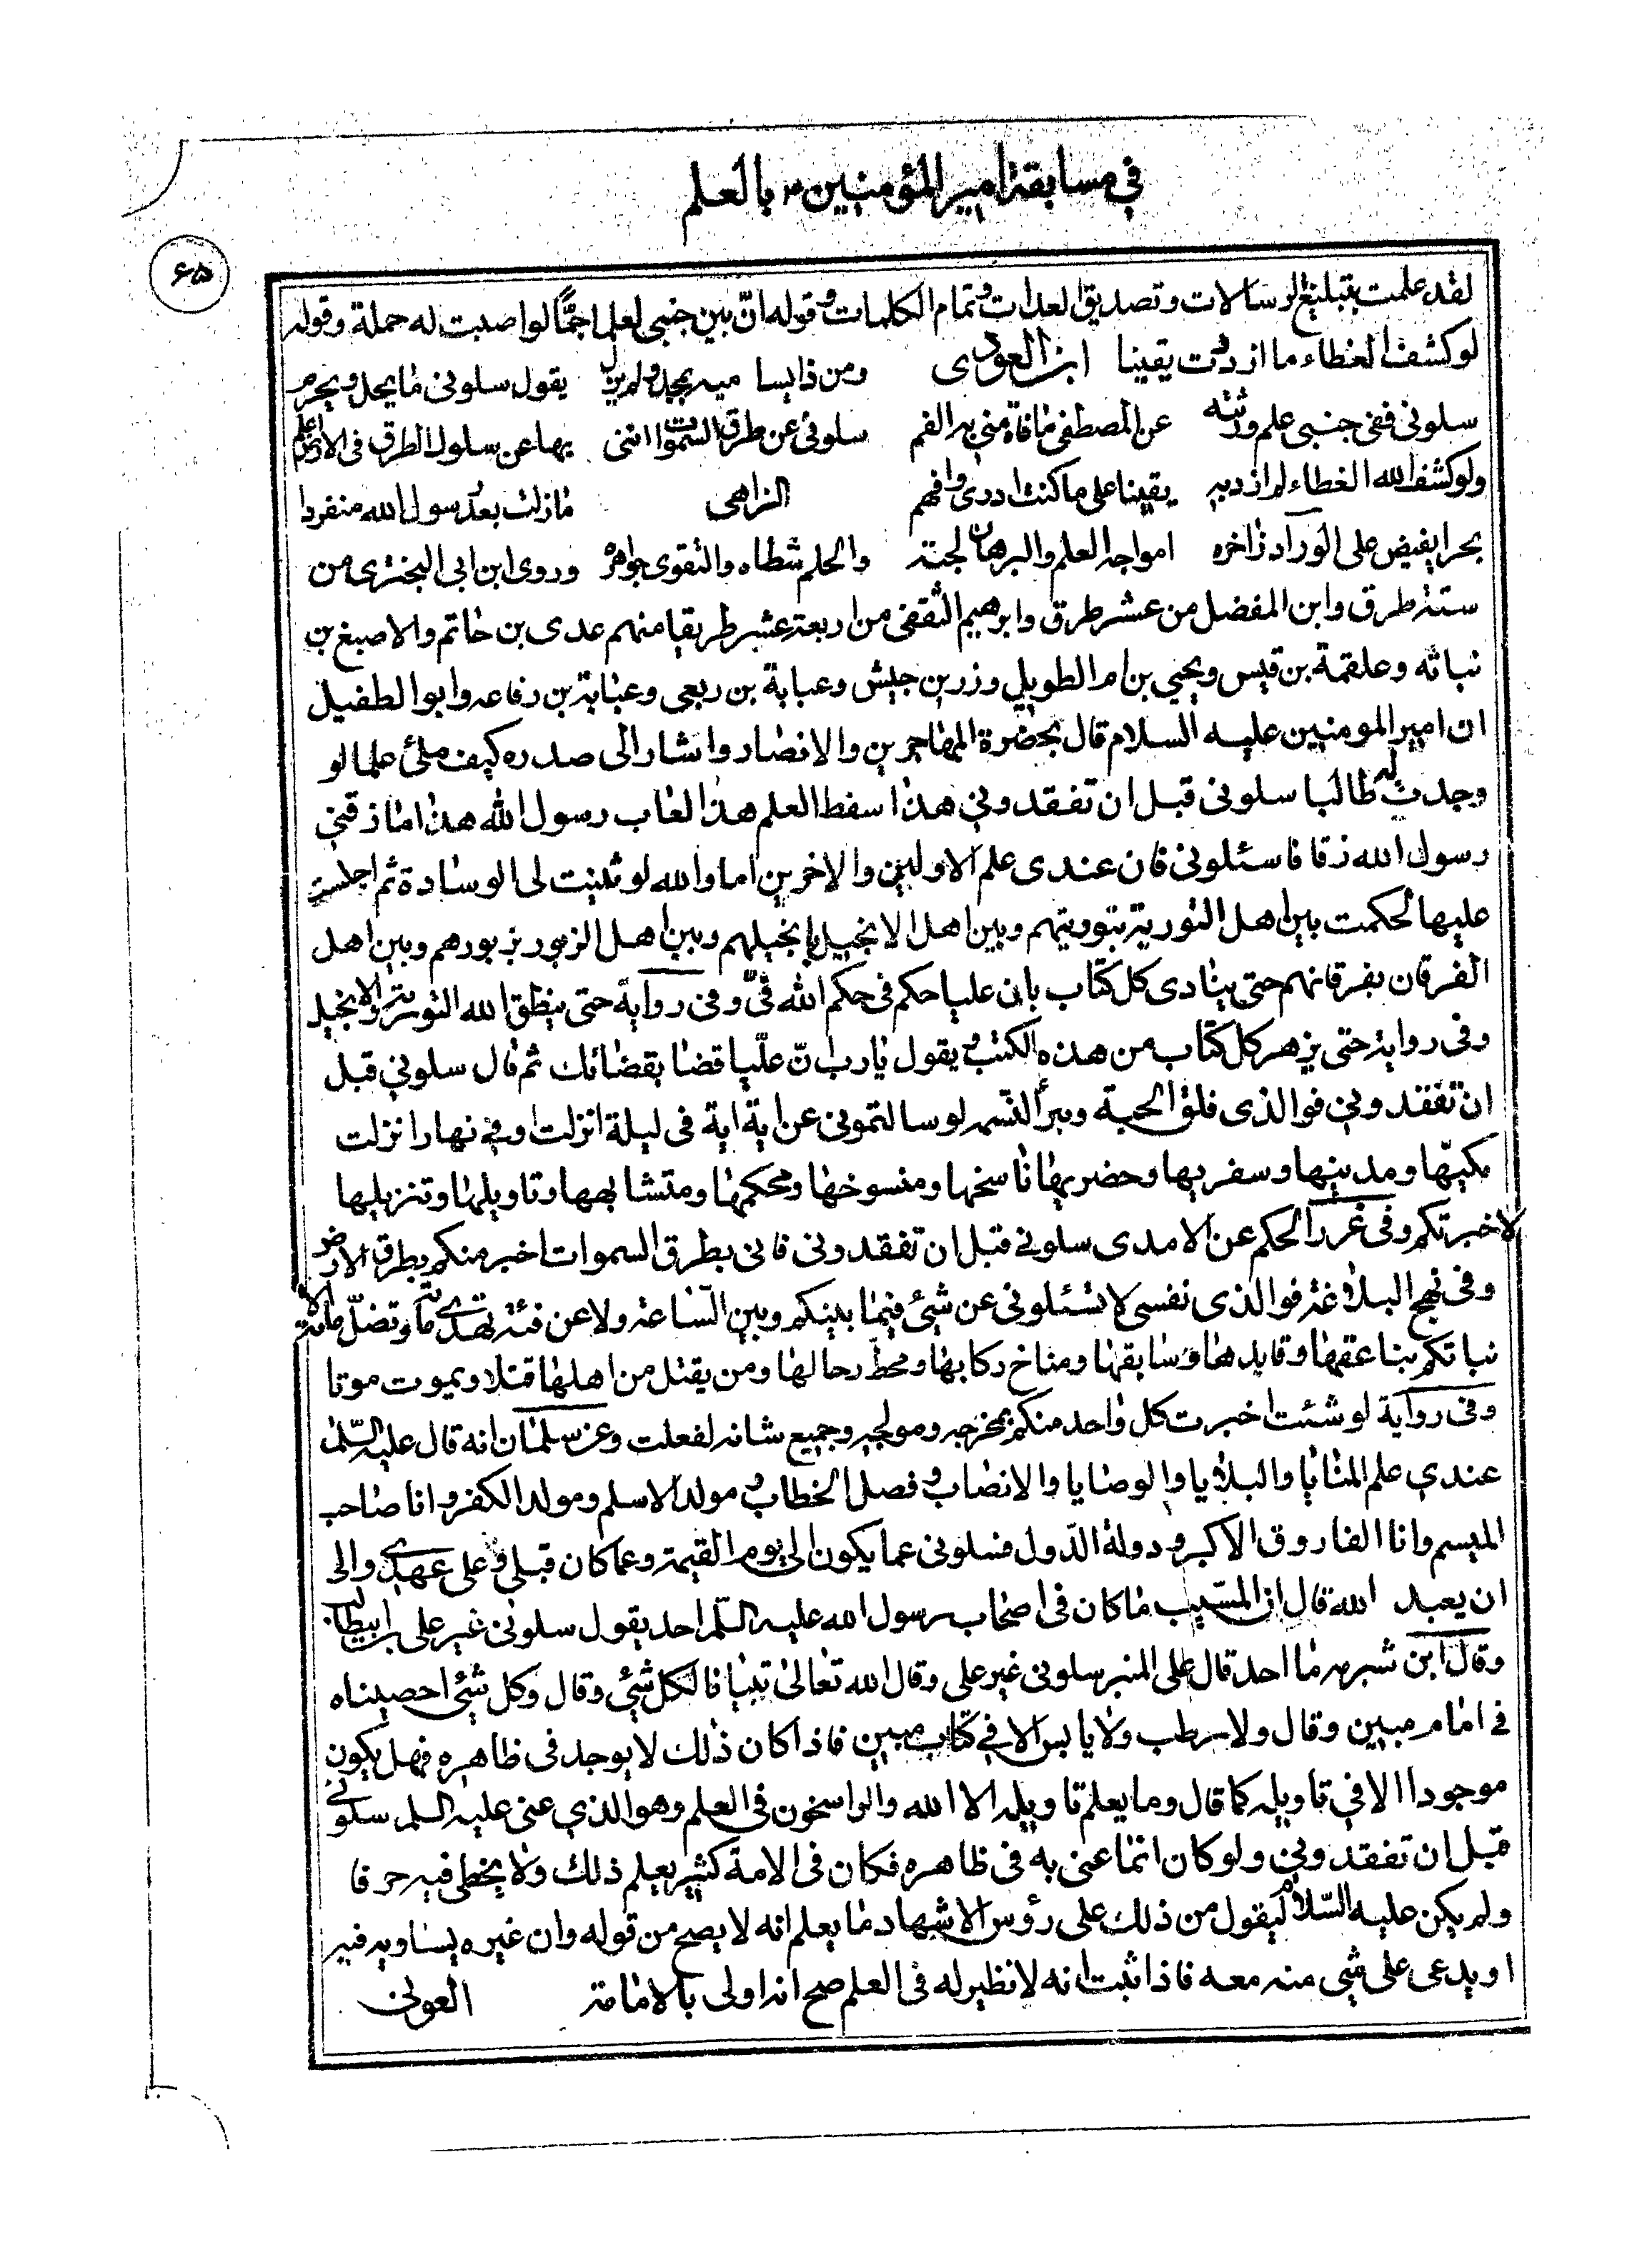 في مسابقة امير المؤمنين ع بالعلم
٤٥
لقد علمت بتبليغ الرسالات وتصديق العدات وتمام الكلمات وقوله انّ بين جنبى لعلما جمّا لو اصبت له حملة وقوله
لو كشف الغطاء ما ازددت يقينا ابن العودى ومن ذا يساميه بمجد ولم يزل يقول سلونى ما يحل ويحرم
سلونى ففى جنبى علم ورثته عن المصطفى ما فاه منى به الفم سلونى عن طرق السموات اننى بها عن سلوك الطرق فى الارض اعلم
ولو كشف الله الغطاء لم ازد به يقينا على ما كنت ادرى وافهم الزاهى ما زلت بعد رسول الله منفردا
بحرا يفيض على الوراد زاخره امواجه العلم والبرهان لجته والحلم شطاه والتقوى جواهره وروى ابن ابى البخترى من
ستة طرق وابن المفضل من عشر طرق وابرهيم الثقفى من اربعة عشر طريقا منهم عدى بن حاتم والاصبغ بن
نباته وعلقمة بن قيس ويحيى بن ام الطويل وزر بن حبيش وعباية بن ربعى وعباية بن رفاعه وابو الطفيل
ان امير المومنين عليه السلام قال بحضرة المهاجرين والانصار واشار الى صدره كيف ملئ علما لو
وجدت له طالبا سلونى قبل ان تفقدونى هذا سفط العلم هذا لعاب رسول الله هذا ما زقنى
رسول الله زقا فاسئلونى فان عندى علم الاولين والاخرين اما والله لو ثنيت لى الوسادة ثم اجلست
عليها لحكمت بين اهل التورية بتوريتهم وبين اهل الانجيل بانجيلهم وبين اهل الزبور بزبورهم وبين اهل
الفرقان بفرقانهم حتى ينادى كل كتاب بان عليا حكم فى حكم الله فىّ وفى رواية حتى ينطق الله التورية والانجيل
وفى رواية حتى يزهر كل كتاب من هذه الكتب ويقول يا رب انّ عليّا قضا بقضائك ثم قال سلونى قبل
ان تفقدونى فو الذى فلق الحبة وبرأ النسمه لو سالتمونى عن اية اية فى ليلة انزلت او فى نهار انزلت
مكيّها ومدينها وسفريها وحضريها ناسخها ومنسوخها ومحكمها ومتشابهها وتاويلها وتنزيلها
لاخبرتكم وفى غرر الحكم عن الامدى سلونى قبل ان تفقدونى فانى بطرق السموات اخبر منكم بطرق الارض
وفى نهج البلاغة فو الذى نفسى لا تسئلونى عن شئ فيما بينكم وبين السّاعة ولا عن فئة تهدى مائة وتضلّ مائة الا
نباتكم بناعقها وقايدها وسابقها ومناخ ركابها ومحطّ رحالها ومن يقتل من اهلها قتلا ويموت موتا
وفى رواية لو شئت اخبرت كل واحد منكم بمخرجه ومولجه وجميع شانه لفعلت وعن سلمان انه قال عليه السّلم
عندى علم المنايا والبلايا والوصايا والانصاب وفصل الخطاب ومولد الاسلم ومولد الكفر وانا صاحب
الميسم وانا الفاروق الاكبر ودولة الدّول فسلونى عما يكون الى يوم القيمة وعما كان قبلى وعلى عهدى والى
ان يعبد الله قال ابن المسّيب ما كان فى اصحاب رسول الله عليه السّلم احد يقول سلونى غير على بن ابيطالب
وقال ابن شبرمه ما احد قال على المنبر سلونى غير على وقال الله تعالى تبيانا لكل شئ وقال وكل شئ احصيناه
فى امام مبين وقال ولا رطب ولا يابس الا فى كتاب مبين فاذا كان ذلك لا يوجد فى ظاهره فهل يكون
موجودا الا فى تاويله كما قال وما يعلم تاويله الا الله والراسخون فى العلم وهو الذى عنى عليه السلم سلونى
قبل ان تفقدونى ولو كان انما عنى به فى ظاهره فكان فى الامة كثير يعلم ذلك ولا يخطى فيه حرفا
ولم يكن عليه السّلام ليقول من ذلك على رؤس الاشهاد ما يعلم انه لا يصح من قوله وان غيره يساويه فيه
او يدعى على شى منه معه فاذا ثبت انه لا نظير له فى العلم صح انه اولى بالامامة العونى